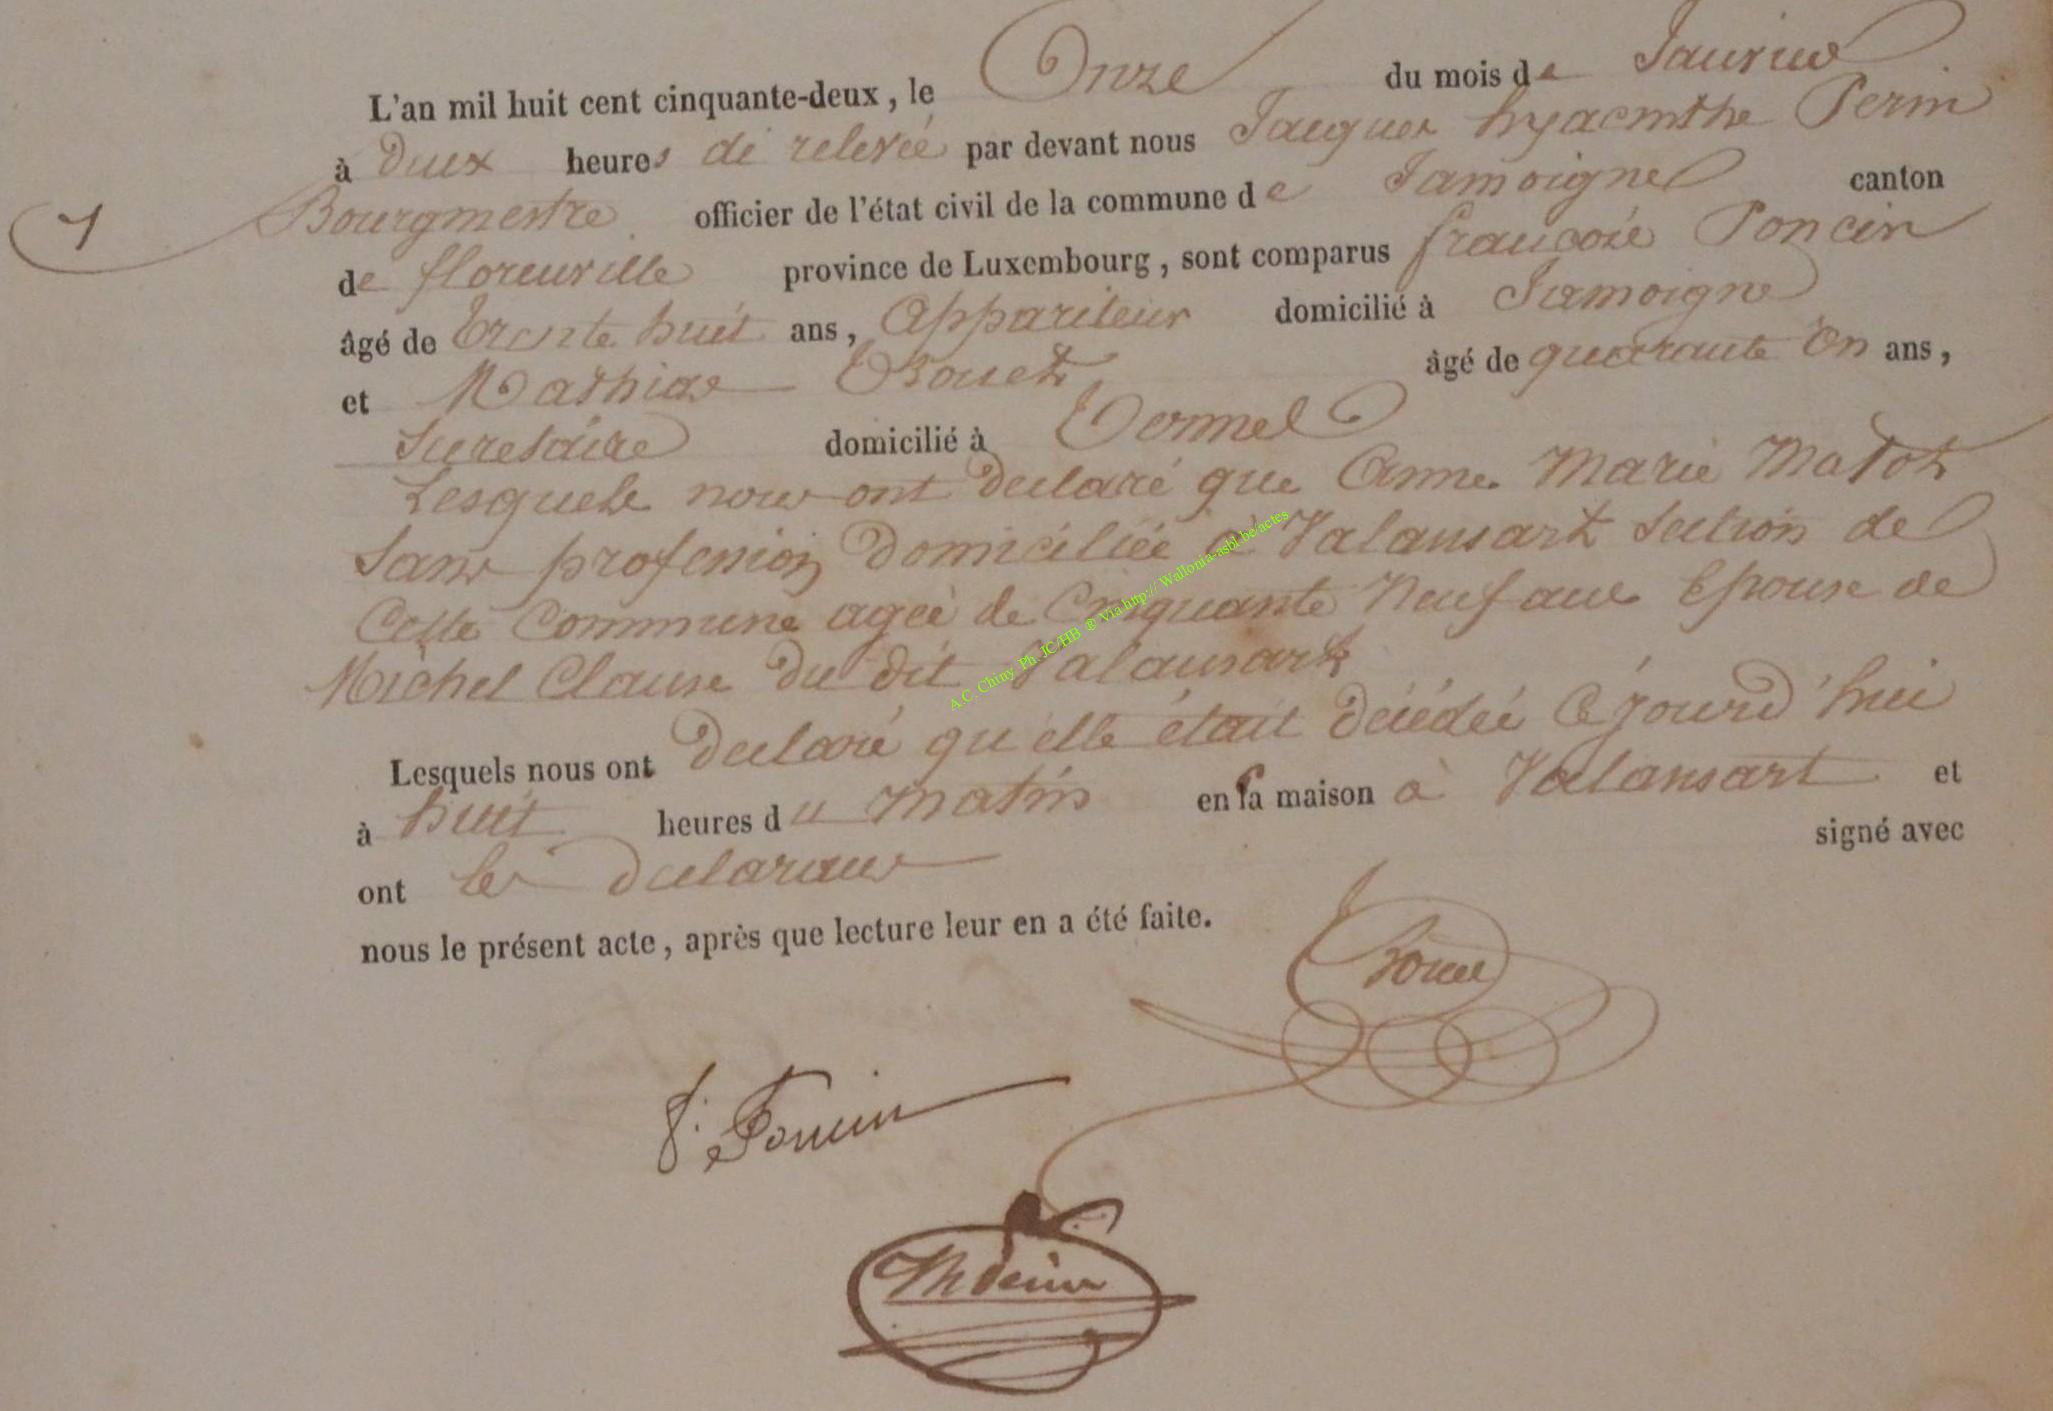 L'an mil huit cent cinquante-deux, le Onze du mois de Janvier
à deux heures de relevée par devant nous Jacques hyacinthe Perin
1 Bourgmestre officier de l'état civil de la commune de Jamoigne canton
de florenville province de Luxembourg, sont comparus françois Poncin
âgé de trente huit ans, appariteur domicilié à Jamoigne
et Mathias Bouet âgé de quarante un ans,
Secretaire domicilié à
Lesquels nous ont declaré que Anne Marie Matot
sans profession domiciliée à Valansart section de
Cette Commune agée de Cinquante Neuf ans Epouse de
Michel Clause du dit Valansart
Lesquels nous ont declaré qu'elle était décédée Cejourd'hui
à huit heures du matin en sa maison à Valansart et
ont les declarans signé avec
nous le présent acte, après que lecture leur en a été faite.
Bouet
f. Poncin
JhPerin
A.C. Chiny Ph. JC/HB ® Via http:// Wallonia-asbl.be/actes